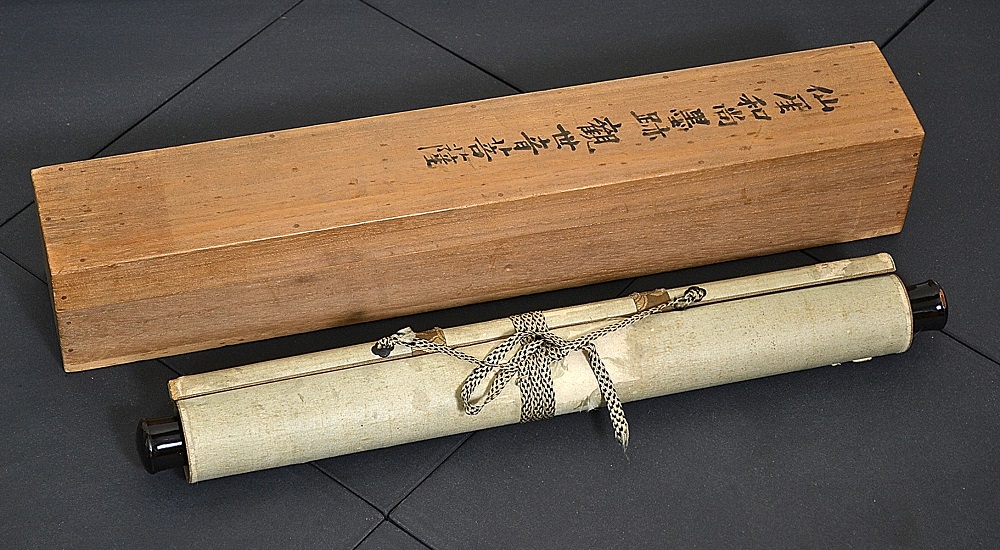 仙厓和尚墨跡 觀世音菩薩